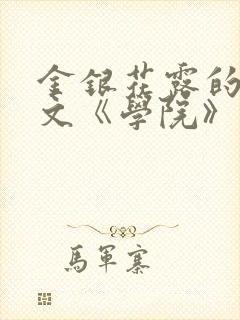 金銀花露的
文《學院》
馬軍寨